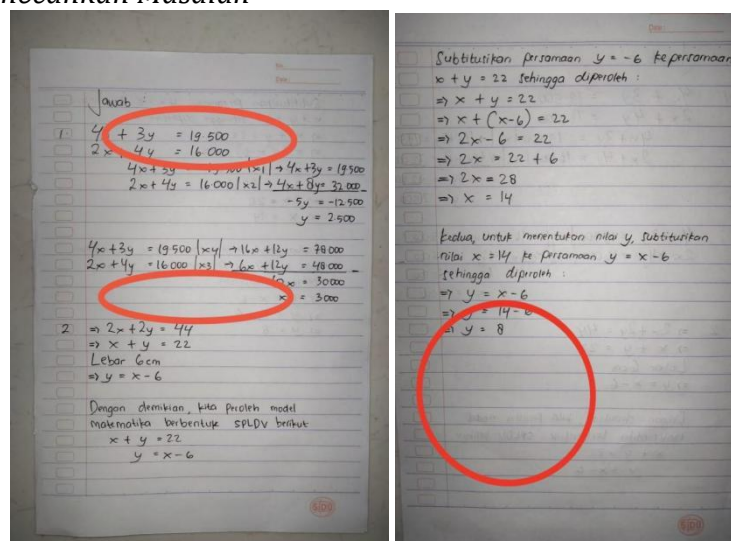 No.
Date:
Jawab :
1. 4x + 3y = 19.500
2x + 4y = 16.000
4x + 3y = 19.500 |x1| → 4x+3y = 19500
2x + 4y = 16.000 |x2| → 4x + 8y = 32.000 -
-5y = -12.500
y = 2.500
4x+3y = 19500 |x4| → 16x +12y = 78000
2x+4y = 16000 |x3| → 6x +12y = 48000 -
10x = 30000
x = 3000
2 => 2x + 2y = 44
=> x + y = 22
Lebar 6cm
=> y = x - 6
Dengan demikian, kita peroleh model
matematika berbentuk SPLDV berikut
x + y = 22
y = x - 6
Date:
Subtitusikan persamaan y = -6 ke persamaan
x + y = 22 sehingga diperoleh :
=> x + y = 22
=> x + (x-6) = 22
=> 2x - 6 = 22
=> 2x = 22 + 6
=> 2x = 28
=> x = 14
kedua, untuk menentukan nilai y, subtitusikan
nilai x = 14 ke persamaan y = x - 6
sehingga diperoleh :
=> y = x - 6
=> y = 14 - 6
=> y = 8